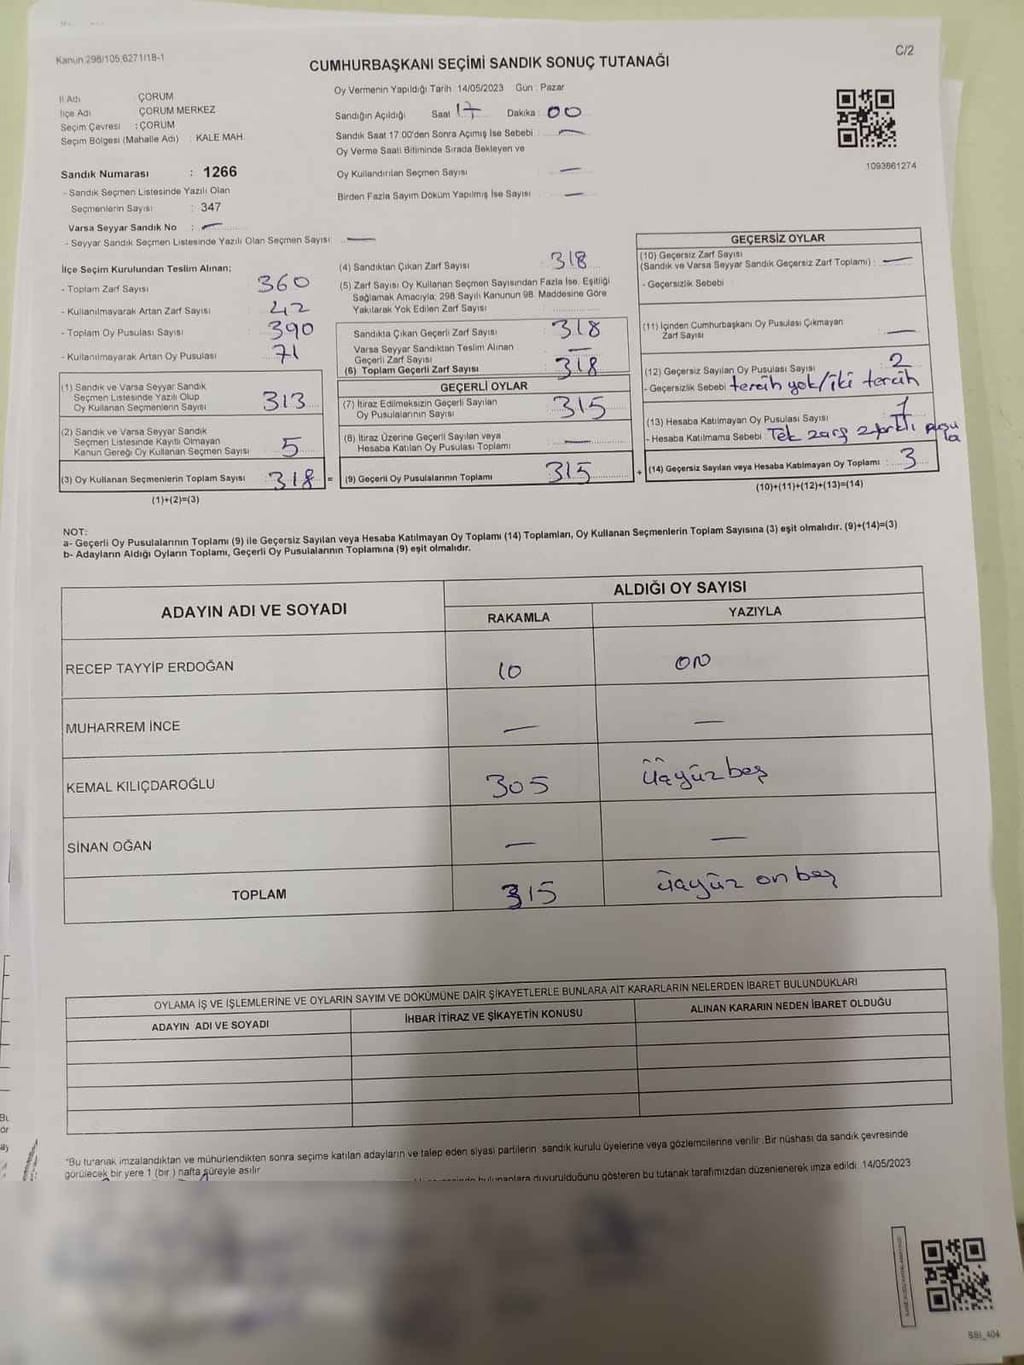 Kanun 298/105,6271/18-1
C/2
CUMHURBAŞKANI SEÇİMİ SANDIK SONUÇ TUTANAĞI
İl Adı ÇORUM
İlçe Adı ÇORUM MERKEZ
Seçim Çevresi : ÇORUM
Seçim Bölgesi (Mahalle Adı) : KALE MAH.
Sandık Numarası : 1266
- Sandık Seçmen Listesinde Yazılı Olan
Seçmenlerin Sayısı : 347
Varsa Seyyar Sandık No : —
- Seyyar Sandık Seçmen Listesinde Yazılı Olan Seçmen Sayısı: —
Oy Vermenin Yapıldığı Tarih 14/05/2023 Gün : Pazar
Sandığın Açıldığı Saat 17 Dakika : 00
Sandık Saat 17.00'den Sonra Açımış İse Sebebi : —
Oy Verme Saati Bitiminde Sırada Bekleyen ve
Oy Kullandırılan Seçmen Sayısı —
Birden Fazla Sayım Döküm Yapılmış İse Sayısı —
1093861274
İlçe Seçim Kurulundan Teslim Alınan;
- Toplam Zarf Sayısı 360
- Kullanılmayarak Artan Zarf Sayısı 42
- Toplam Oy Pusulası Sayısı 390
- Kullanılmayarak Artan Oy Pusulası 71
(1) Sandık ve Varsa Seyyar Sandık
Seçmen Listesinde Yazılı Olup
Oy Kullanan Seçmenlerin Sayısı 313
(2) Sandık ve Varsa Seyyar Sandık
Seçmen Listesinde Kayıtlı Olmayan
Kanun Gereği Oy Kullanan Seçmen Sayısı 5
(3) Oy Kullanan Seçmenlerin Toplam Sayısı 318 =
(1)+(2)=(3)
(4) Sandıktan Çıkan Zarf Sayısı 318
(5) Zarf Sayısı Oy Kullanan Seçmen Sayısından Fazla İse, Eşitliği
Sağlamak Amacıyla, 298 Sayılı Kanunun 98. Maddesine Göre
Yakılarak Yok Edilen Zarf Sayısı
Sandıkta Çıkan Geçerli Zarf Sayısı 318
Varsa Seyyar Sandıktan Teslim Alınan
Geçerli Zarf Sayısı —
(6) Toplam Geçerli Zarf Sayısı 318
GEÇERLİ OYLAR
(7) İtiraz Edilmeksizin Geçerli Sayılan
Oy Pusulalarının Sayısı 315
(8) İtiraz Üzerine Geçerli Sayılan veya
Hesaba Katılan Oy Pusulası Toplamı —
(9) Geçerli Oy Pusulalarının Toplamı 315 +
GEÇERSİZ OYLAR
(10) Geçersiz Zarf Sayısı
(Sandık ve Varsa Seyyar Sandık Geçersiz Zarf Toplamı) : —
- Geçersizlik Sebebi
(11) İçinden Cumhurbaşkanı Oy Pusulası Çıkmayan
Zarf Sayısı —
(12) Geçersiz Sayılan Oy Pusulası Sayısı 2
- Geçersizlik Sebebi tercih yok/iki tercih
(13) Hesaba Katılmayan Oy Pusulası Sayısı 1
- Hesaba Katılmama Sebebi : Tek zarf 2 farklı pusula
(14) Geçersiz Sayılan veya Hesaba Katılmayan Oy Toplamı : 3
(10)+(11)+(12)+(13)=(14)
NOT:
a- Geçerli Oy Pusulalarının Toplamı (9) ile Geçersiz Sayılan veya Hesaba Katılmayan Oy Toplamı (14) Toplamları, Oy Kullanan Seçmenlerin Toplam Sayısına (3) eşit olmalıdır. (9)+(14)=(3)
b- Adayların Aldığı Oyların Toplamı, Geçerli Oy Pusulalarının Toplamına (9) eşit olmalıdır.
ADAYIN ADI VE SOYADI
ALDIĞI OY SAYISI
RAKAMLA YAZIYLA
RECEP TAYYİP ERDOĞAN 10 on
MUHARREM İNCE — —
KEMAL KILIÇDAROĞLU 305 üçyüz beş
SİNAN OĞAN — —
TOPLAM 315 üçyüz on beş
OYLAMA İŞ VE İŞLEMLERİNE VE OYLARIN SAYIM VE DÖKÜMÜNE DAİR ŞİKAYETLERLE BUNLARA AİT KARARLARIN NELERDEN İBARET BULUNDUKLARI
ADAYIN ADI VE SOYADI İHBAR İTİRAZ VE ŞİKAYETİN KONUSU ALINAN KARARIN NEDEN İBARET OLDUĞU
*Bu tutanak imzalandıktan ve mühürlendikten sonra seçime katılan adayların ve talep eden siyasi partilerin sandık kurulu üyelerine veya gözlemcilerine verilir. Bir nüshası da sandık çevresinde
görülecek bir yere 1 (bir ) hafta süreyle asılır.
bulunanlara duyurulduğunu gösteren bu tutanak tarafımızdan düzenlenerek imza edildi. 14/05/2023
SBİ_404